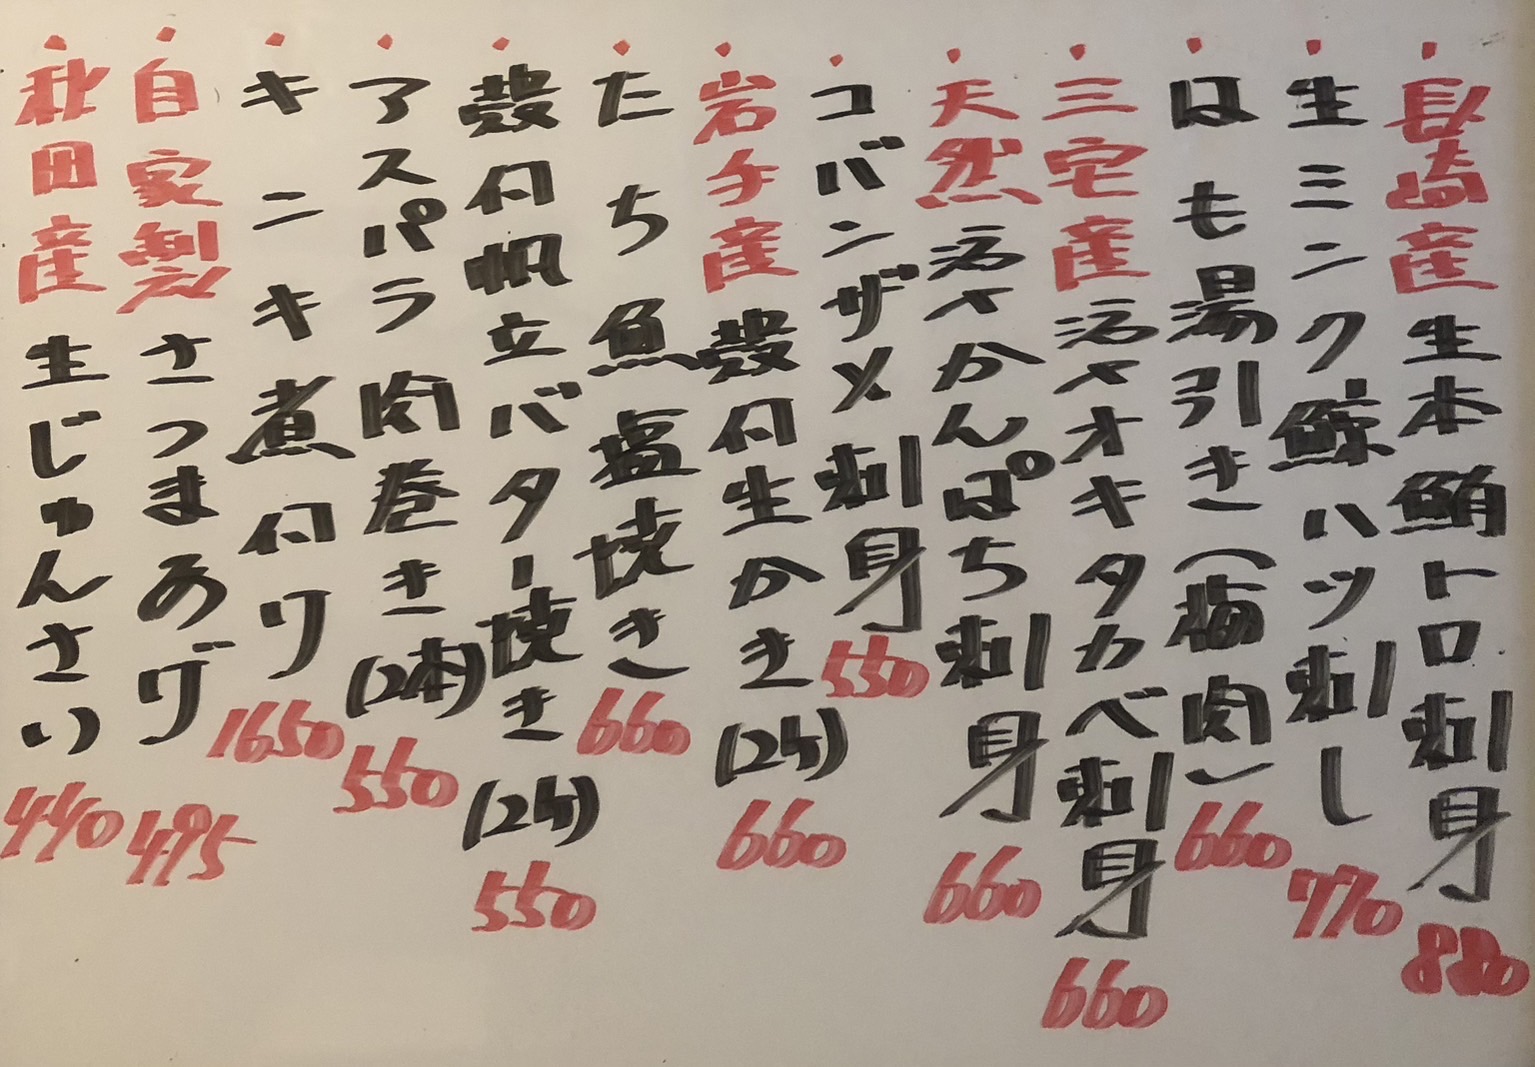 ・長崎産生本鮪トロ刺身 880
・生ミンク鯨ハツ刺し 770
・はも湯引き(梅肉) 660
・三宅産活〆オキタカベ刺身 660
・天然活〆かんぱち刺身 660
・コバンザメ刺身 550
・岩手産殻付生かき(2ケ) 660
・たち魚塩焼き 660
・殻付帆立バター焼き(2ケ) 550
・アスパラ肉巻き(2本) 550
・キンキ煮付け 1650
・自家製さつまあげ 495
・秋田産生じゅんさい 440